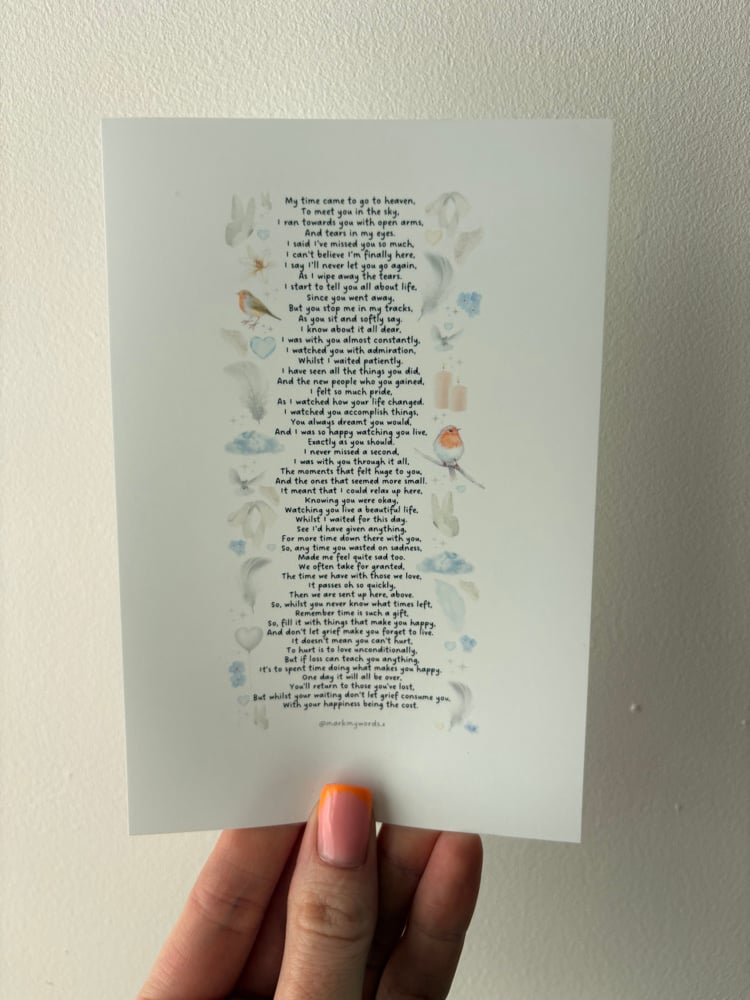 My time came to go to heaven,
To meet you in the sky,
I ran towards you with open arms,
And tears in my eyes.
I said I've missed you so much,
I can't believe I'm finally here,
I say I'll never let you go again,
As I wipe away the tears.
I start to tell you all about life,
Since you went away,
But you stop me in my tracks,
As you sit and softly say.
I know about it all dear,
I was with you almost constantly,
I watched you with admiration,
Whilst I waited patiently.
I have seen all the things you did,
And the new people who you gained,
I felt so much pride,
As I watched how your life changed.
I watched you accomplish things,
You always dreamt you would,
And I was so happy watching you live,
Exactly as you should.
I never missed a second,
I was with you through it all,
The moments that felt huge to you,
And the ones that seemed more small.
It meant that I could relax up here,
Knowing you were okay,
Watching you live a beautiful life,
Whilst I waited for this day.
See I'd have given anything,
For more time down there with you,
So, any time you wasted on sadness,
Made me feel quite sad too.
We often take for granted,
The time we have with those we love,
It passes oh so quickly,
Then we are sent up here, above.
So, whilst you never know what times left,
Remember time is such a gift,
So, fill it with things that make you happy,
And don't let grief make you forget to live.
It doesn't mean you can't hurt,
To hurt is to love unconditionally,
But if loss can teach you anything,
It's to spent time doing what makes you happy.
One day it will all be over,
You'll return to those you've lost,
But whilst your waiting don't let grief consume you,
With your happiness being the cost.
@markmywords.x